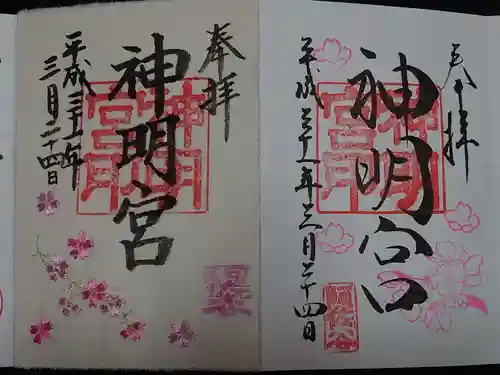 奉拝
神明宮
神明宮印
阿佐谷
平成三十一年三月二十四日
奉拝
神明宮
神明宮印
平成三十一年
三月二十四日